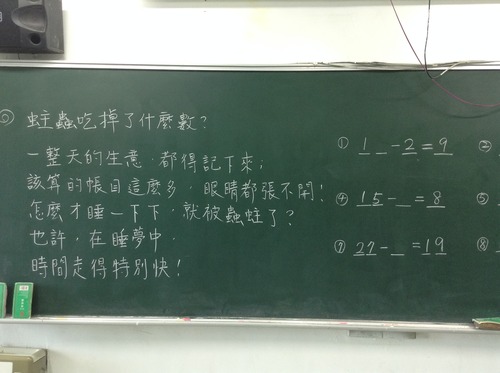 ◎ 蛀蟲吃掉了什麼數?
一整天的生意,都得記下來;
該算的帳目這麼多,眼睛都張不開!
怎麼才睡一下下,就被蟲蛀了?
也許,在睡夢中,
時間走得特別快!
① 1_-2=9
②
④ 15-_=8
⑤
⑦ 27-_=19
⑧